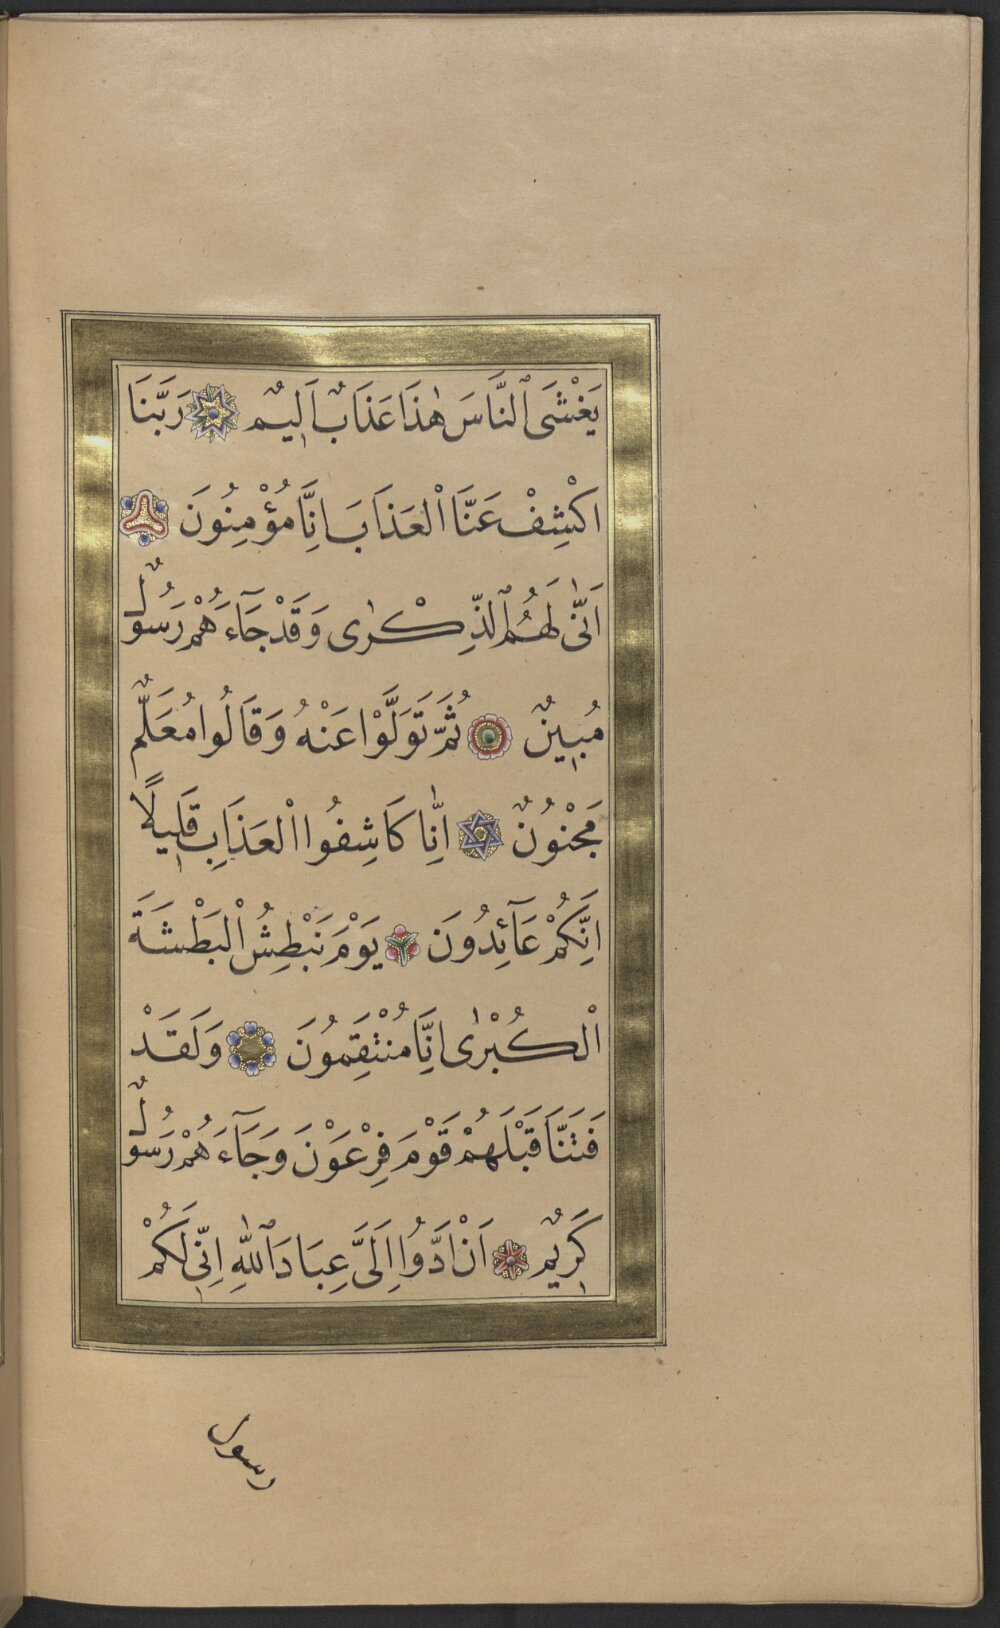 يَغْشَى ٱلنَّاسَ هٰذَا عَذَابٌ اَلِيمٌ رَبَّنَا
اكْشِفْ عَنَّا الْعَذَابَ اِنَّا مُؤْمِنُونَ
اَنّٰى لَهُمُ ٱلذِّكْرٰى وَقَدْ جَآءَهُمْ رَسُولٌ
مُبِينٌ ثُمَّ تَوَلَّوْا عَنْهُ وَقَالُوا مُعَلَّمٌ
مَجْنُونٌ اِنَّا كَاشِفُوا الْعَذَابِ قَلِيلًا
اِنَّكُمْ عَآئِدُونَ يَوْمَ نَبْطِشُ الْبَطْشَةَ
الْكُبْرٰى اِنَّا مُنْتَقِمُونَ وَلَقَدْ
فَتَنَّا قَبْلَهُمْ قَوْمَ فِرْعَوْنَ وَجَآءَهُمْ رَسُولٌ
كَرِيمٌ اَنْ اَدُّوا اِلَىَّ عِبَادَ ٱللّٰهِ اِنِّى لَكُمْ
رسول